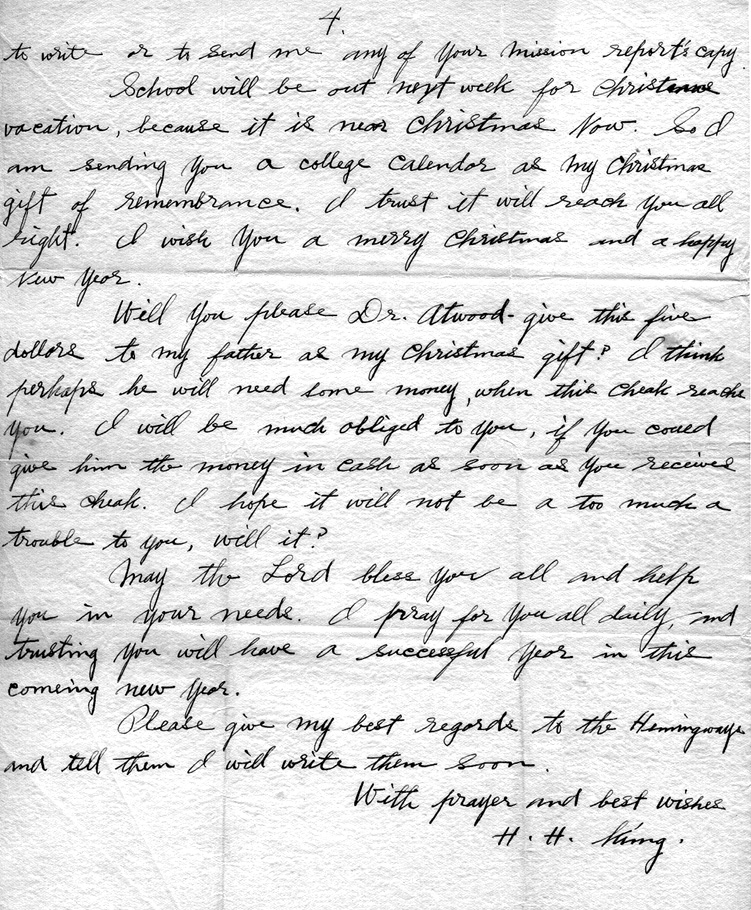 4.
to write or to send me any of your mission report's copy.
School will be out next week for Christmas
vacation, because it is near Christmas Now. So I
am sending you a college calendar as my Christmas
gift of remembrance. I trust it will reach you all
right. I wish you a merry Christmas and a happy
New Year.
Will you please Dr. Atwood- give this five
dollars to my father as my Christmas gift? I think
perhaps he will need some money, when this cheak reachs
you. I will be much obliged to you, if you could
give him the money in cash as soon as you receives
this cheak. I hope it will not be a too much a
trouble to you, will it?
May the Lord bless you all and help
you in your needs. I pray for you all daily, and
trusting you will have a successful year in this
comeing new year.
Please give my best regards to the Hemingways
and tell them I will write them soon.
With prayer and best wishes
H. H. King.